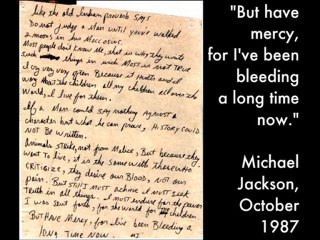 like the old Indian proverb says
Do not judge a man until you've walked
2 moons in his Moccosins.
Most people don't know me, that is why they write
such things in wich Most is not true
I cry very very often Because it hurts and I
worry about the children all my children all over the
World, I live for them.
If a Man could say nothing AGAINST a
character but what he can prove, HISTORY COULD
NOT BE written.
Animals strike, not from Malice, But because they
want to live, it is the same with those who
CRITICIZE, they desire our BLOOD, NOT our
pain. But STILL I must achieve I must seek
Truth in all things. I must endure for the power
I was sent forth, for the world for the children
BUT HAVE Mercy, for I've been Bleeding a
long time NOW. MJ
"But have
mercy,
for I've been
bleeding
a long time
now."
Michael
Jackson,
October
1987